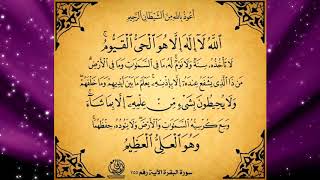 أعوذ بالله من الشيطان الرجيم
ٱللَّهُ لَآ إِلَٰهَ إِلَّا هُوَ ٱلْحَىُّ ٱلْقَيُّومُ ۚ
لَا تَأْخُذُهُ سِنَةٌ وَلَا نَوْمٌ لَهُ مَا فِى ٱلسَّمَٰوَٰتِ وَمَا فِى ٱلْأَرْضِ
مَن ذَا ٱلَّذِى يَشْفَعُ عِندَهُ إِلَّا بِإِذْنِهِ يَعْلَمُ مَا بَيْنَ أَيْدِيهِمْ وَمَا خَلْفَهُمْ
وَلَا يُحِيطُونَ بِشَىْءٍ مِنْ عِلْمِهِ إِلَّا بِمَا شَآءَ
وَسِعَ كُرْسِيُّهُ ٱلسَّمَٰوَٰتِ وَٱلْأَرْضَ وَلَا يَـُٔودُهُ حِفْظُهُمَا
وَهُوَ ٱلْعَلِىُّ ٱلْعَظِيمُ
سورة البقرة الآية رقم ٢٥٥